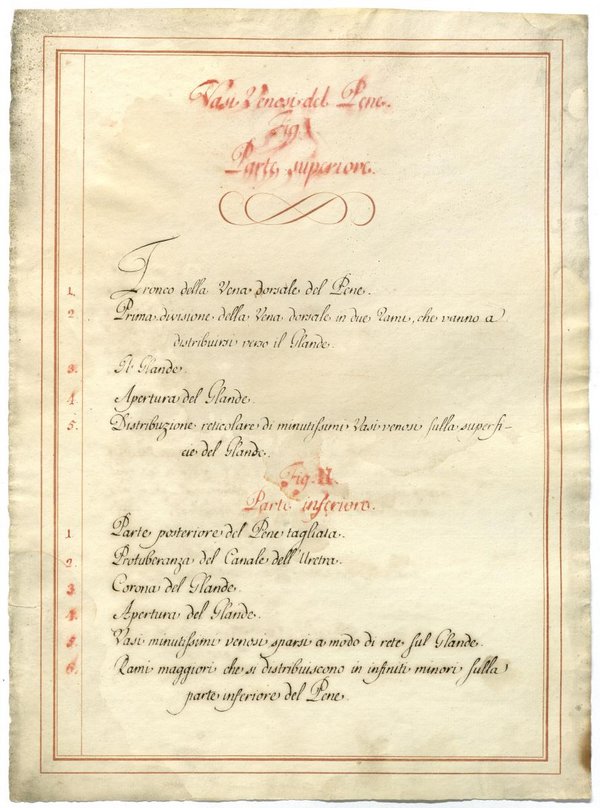 Vasi Venosi del Pene.
Fig. I
Parte superiore.
1. Tronco della Vena dorsale del Pene.
2 Prima divisione della Vena dorsale in due Rami, che vanno a
distribuirsi verso il Glande.
3. Il Glande.
4. Apertura del Glande.
5. Distribuzione reticolare di minutissimi Vasi venosi sulla superfi-
cie del Glande.
Fig. II.
Parte inferiore.
1 Parte posteriore del Pene tagliata.
2. Protuberanza del Canale dell'Uretra.
3. Corona del Glande.
4. Apertura del Glande.
5. Vasi minutissimi venosi sparsi a modo di rete sul Glande.
6. Rami maggiori che si distribuiscono in infiniti minori sulla
parte inferiore del Pene.